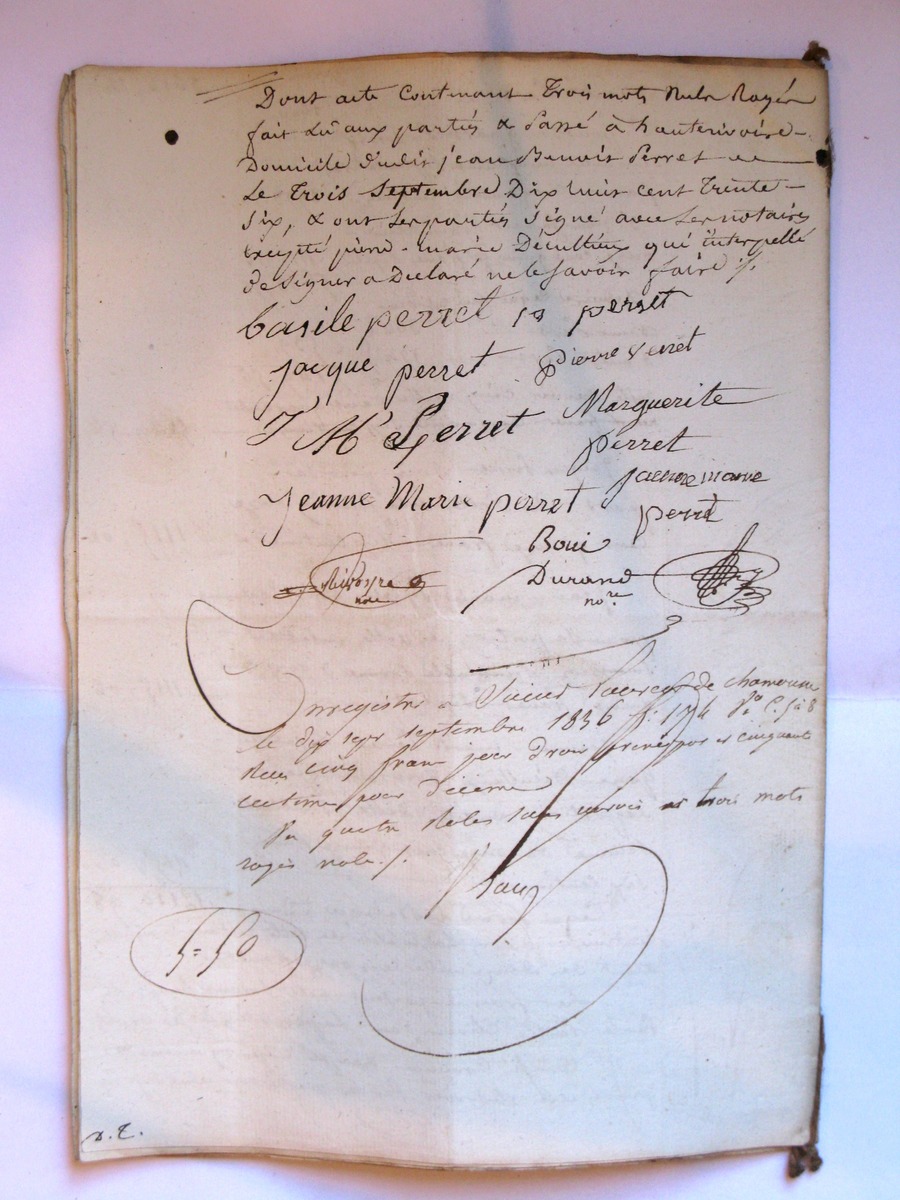 Dont acte Contenant Trois mots Nuls Rayés
fait Lû aux partiés & Passé à hauterivoire
Domicile dudit jean Benoit Perret
Le Trois Septembre Dix huit cent Trente-
Six, & ont Les partiés Signé avec Les notaires
Excepté pierre-marie Décultieux qui interpellé
de Signer a Declaré ne le Savoir faire ./.
basile perret JB perret
jacque perret pierre perret
J M Perret Marguerite
perret
Jeanne Marie perret jeanne marie
perret
nore
Durand
nore
Enregistré à Saint Laurent de chamousset
le dix sept septembre 1836 fo 174 Vo C. 5 à 8
Reçu cinq francs pour droit principal et cinquante
centime pour décime
rôles sans renvois et trois mots
rayés nuls ./.
5= 50
D. T.